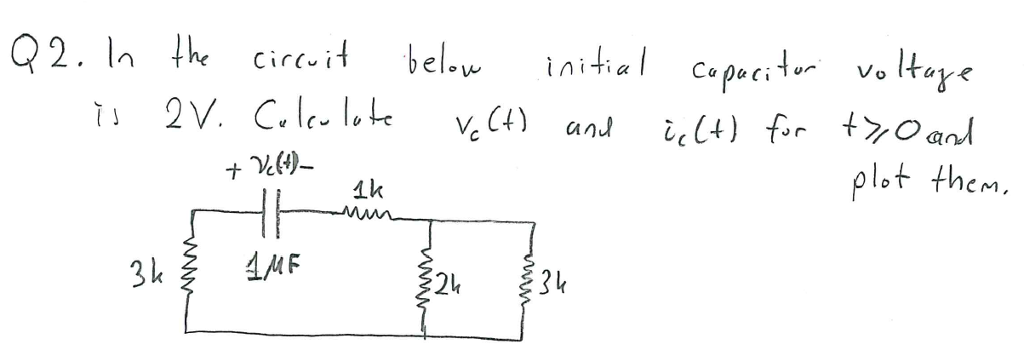 Q2. In the circuit below initial capacitor voltage
is 2V. Calculate vc(t) and ic(t) for t⩾0 and
plot them.
+ Vc(t) –
1k
3k
1MF
2k
3k